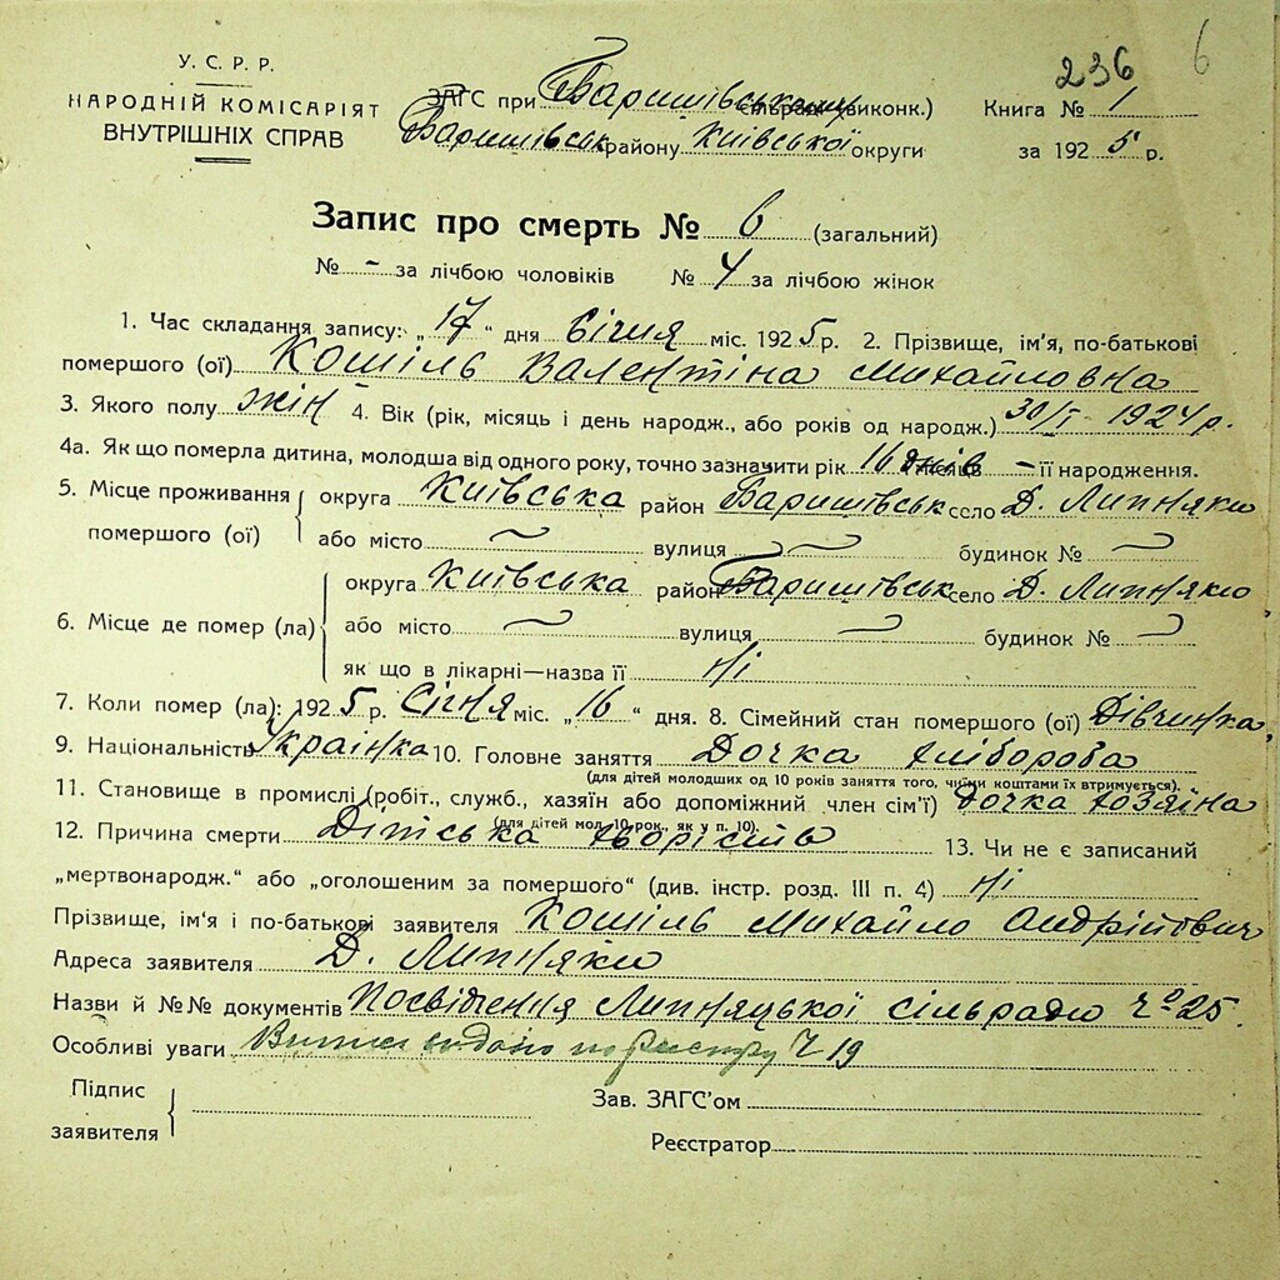 236 6
У. С. Р. Р.
НАРОДНІЙ КОМІСАРІЯТ
ВНУТРІШНІХ СПРАВ
ЗАГС при Баришівському сільраді (виконк.)
Баришівськ району Київської округи
Книга № 1
за 1925 р.
Запис про смерть № 6 (загальний)
№ - за лічбою чоловіків № 4 за лічбою жінок
1. Час складання запису: „17“ дня Січня міс. 1925 р. 2. Прізвище, ім'я, по-батькові
помершого (ої) Кошіль Валентіна Михайловна
3. Якого полу жін 4. Вік (рік, місяць і день народж., або років од народж.) 30/I - 1924 р.
4а. Як що померла дитина, молодша від одного року, точно зазначити рік 16 днів місяць - її народження.
5. Місце проживання помершого (ої) округа Київська район Баришівськ село Д. Липняки
або місто вулиця будинок №
6. Місце де помер (ла) округа Київська район Баришівськ село Д. Липняки
або місто вулиця будинок №
як що в лікарні—назва її ні
7. Коли помер (ла): 1925 р. Січня міс. „16“ дня. 8. Сімейний стан помершого (ої) Дівчинка,
9. Національність Українка 10. Головне заняття Дочка хлібороба
(для дітей молодших од 10 років заняття того, чиїми коштами їх втримується).
11. Становище в промислі (робіт., служб., хазяїн або допоміжний член сім'ї) дочка хозяїна
(для дітей мол. 10 рок., як у п. 10).
12. Причина смерти Дітська хворість 13. Чи не є записаний
„мертвонародж.“ або „оголошеним за помершого“ (див. інстр. розд. III п. 4) ні
Прізвище, ім'я і по-батькові заявителя Кошіль Михайло Андрійович
Адреса заявителя Д. Липняки
Назви й №№ документів Посвідчення Липняцької сільради ч 25.
Особливі уваги Випис видано по Реєстру Ч 19
Підпис заявителя
Зав. ЗАГС'ом
Реєстратор